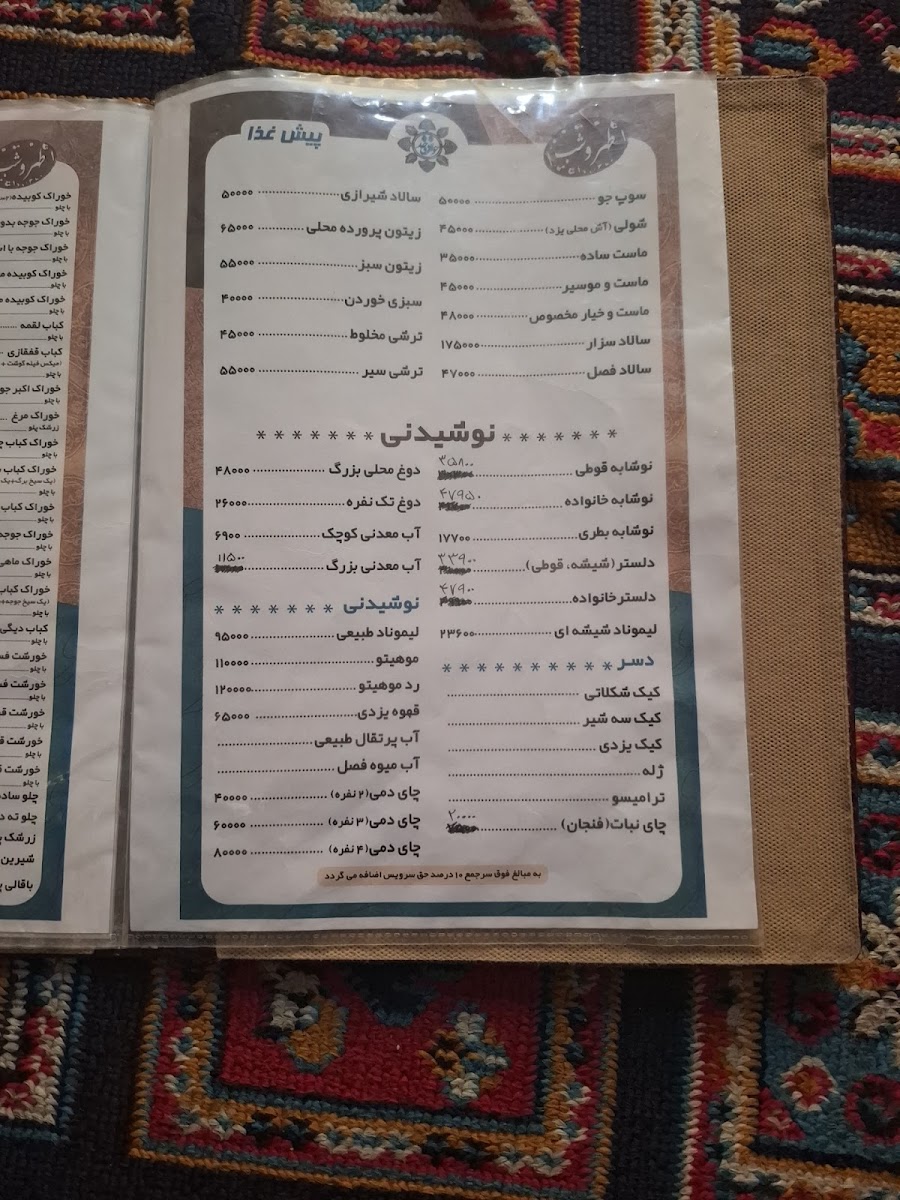 پیش غذا
سوپ جو ۵۰۰۰۰
شولی (آش محلی یزد) ۴۵۰۰۰
ماست ساده ۳۵۰۰۰
ماست و موسیر ۴۵۰۰۰
ماست و خیار مخصوص ۴۸۰۰۰
سالاد سزار ۱۷۵۰۰۰
سالاد فصل ۴۷۰۰۰
سالاد شیرازی ۵۰۰۰۰
زیتون پرورده محلی ۶۵۰۰۰
زیتون سبز ۵۵۰۰۰
سبزی خوردن ۴۰۰۰۰
ترشی مخلوط ۴۵۰۰۰
ترشی سیر ۵۵۰۰۰
* * * * * * * نوشیدنی * * * * * * *
نوشابه قوطی ۳۵۸۰۰
نوشابه خانواده ۴۷۹۵۰
نوشابه بطری ۱۷۷۰۰
دلستر (شیشه، قوطی) ۳۳۹۰۰
دلستر خانواده ۴۷۹۰۰
لیموناد شیشه ای ۲۳۶۰۰
دسر * * * * * * * * * *
کیک شکلاتی
کیک سه شیر
کیک یزدی
ژله
ترامیسو
چای نبات (فنجان) ۲۰۰۰۰
دوغ محلی بزرگ ۴۸۰۰۰
دوغ تک نفره ۲۶۰۰۰
آب معدنی کوچک ۶۹۰۰
آب معدنی بزرگ ۱۱۵۰۰
نوشیدنی * * * * * * *
لیموناد طبیعی ۹۵۰۰۰
موهیتو ۱۱۰۰۰۰
رد موهیتو ۱۲۰۰۰۰
قهوه یزدی ۶۵۰۰۰
آب پرتقال طبیعی
آب میوه فصل
چای دمی (۲ نفره) ۴۰۰۰۰
چای دمی (۳ نفره) ۶۰۰۰۰
چای دمی (۴ نفره) ۸۰۰۰۰
به مبالغ فوق سرجمع ۱۰ درصد حق سرویس اضافه می گردد
خوراک کوبیده
با چلو
خوراک جوجه بدو
با چلو
خوراک جوجه با
با چلو
خوراک کوبیده
با چلو
خوراک کوبیده
با چلو
کباب لقمه
با چلو
کباب قفقازی
(میکس فیله گوشت +
با چلو
خوراک اکبر جو
با چلو
خوراک مرغ
زرشک پلو
خوراک کباب
با چلو
خوراک کباب
با چلو
خوراک کباب
با چلو
خوراک جوجه
با چلو
خوراک ماهی
با چلو
خوراک کباب
با چلو
کباب دیگی
با چلو
خورشت فس
با چلو
خورشت فس
با چلو
خورشت
با چلو
خورشت
با چلو
خورشت
با چلو
چلو ساده
چلو ته د
زرشک
شیرین
باقالی